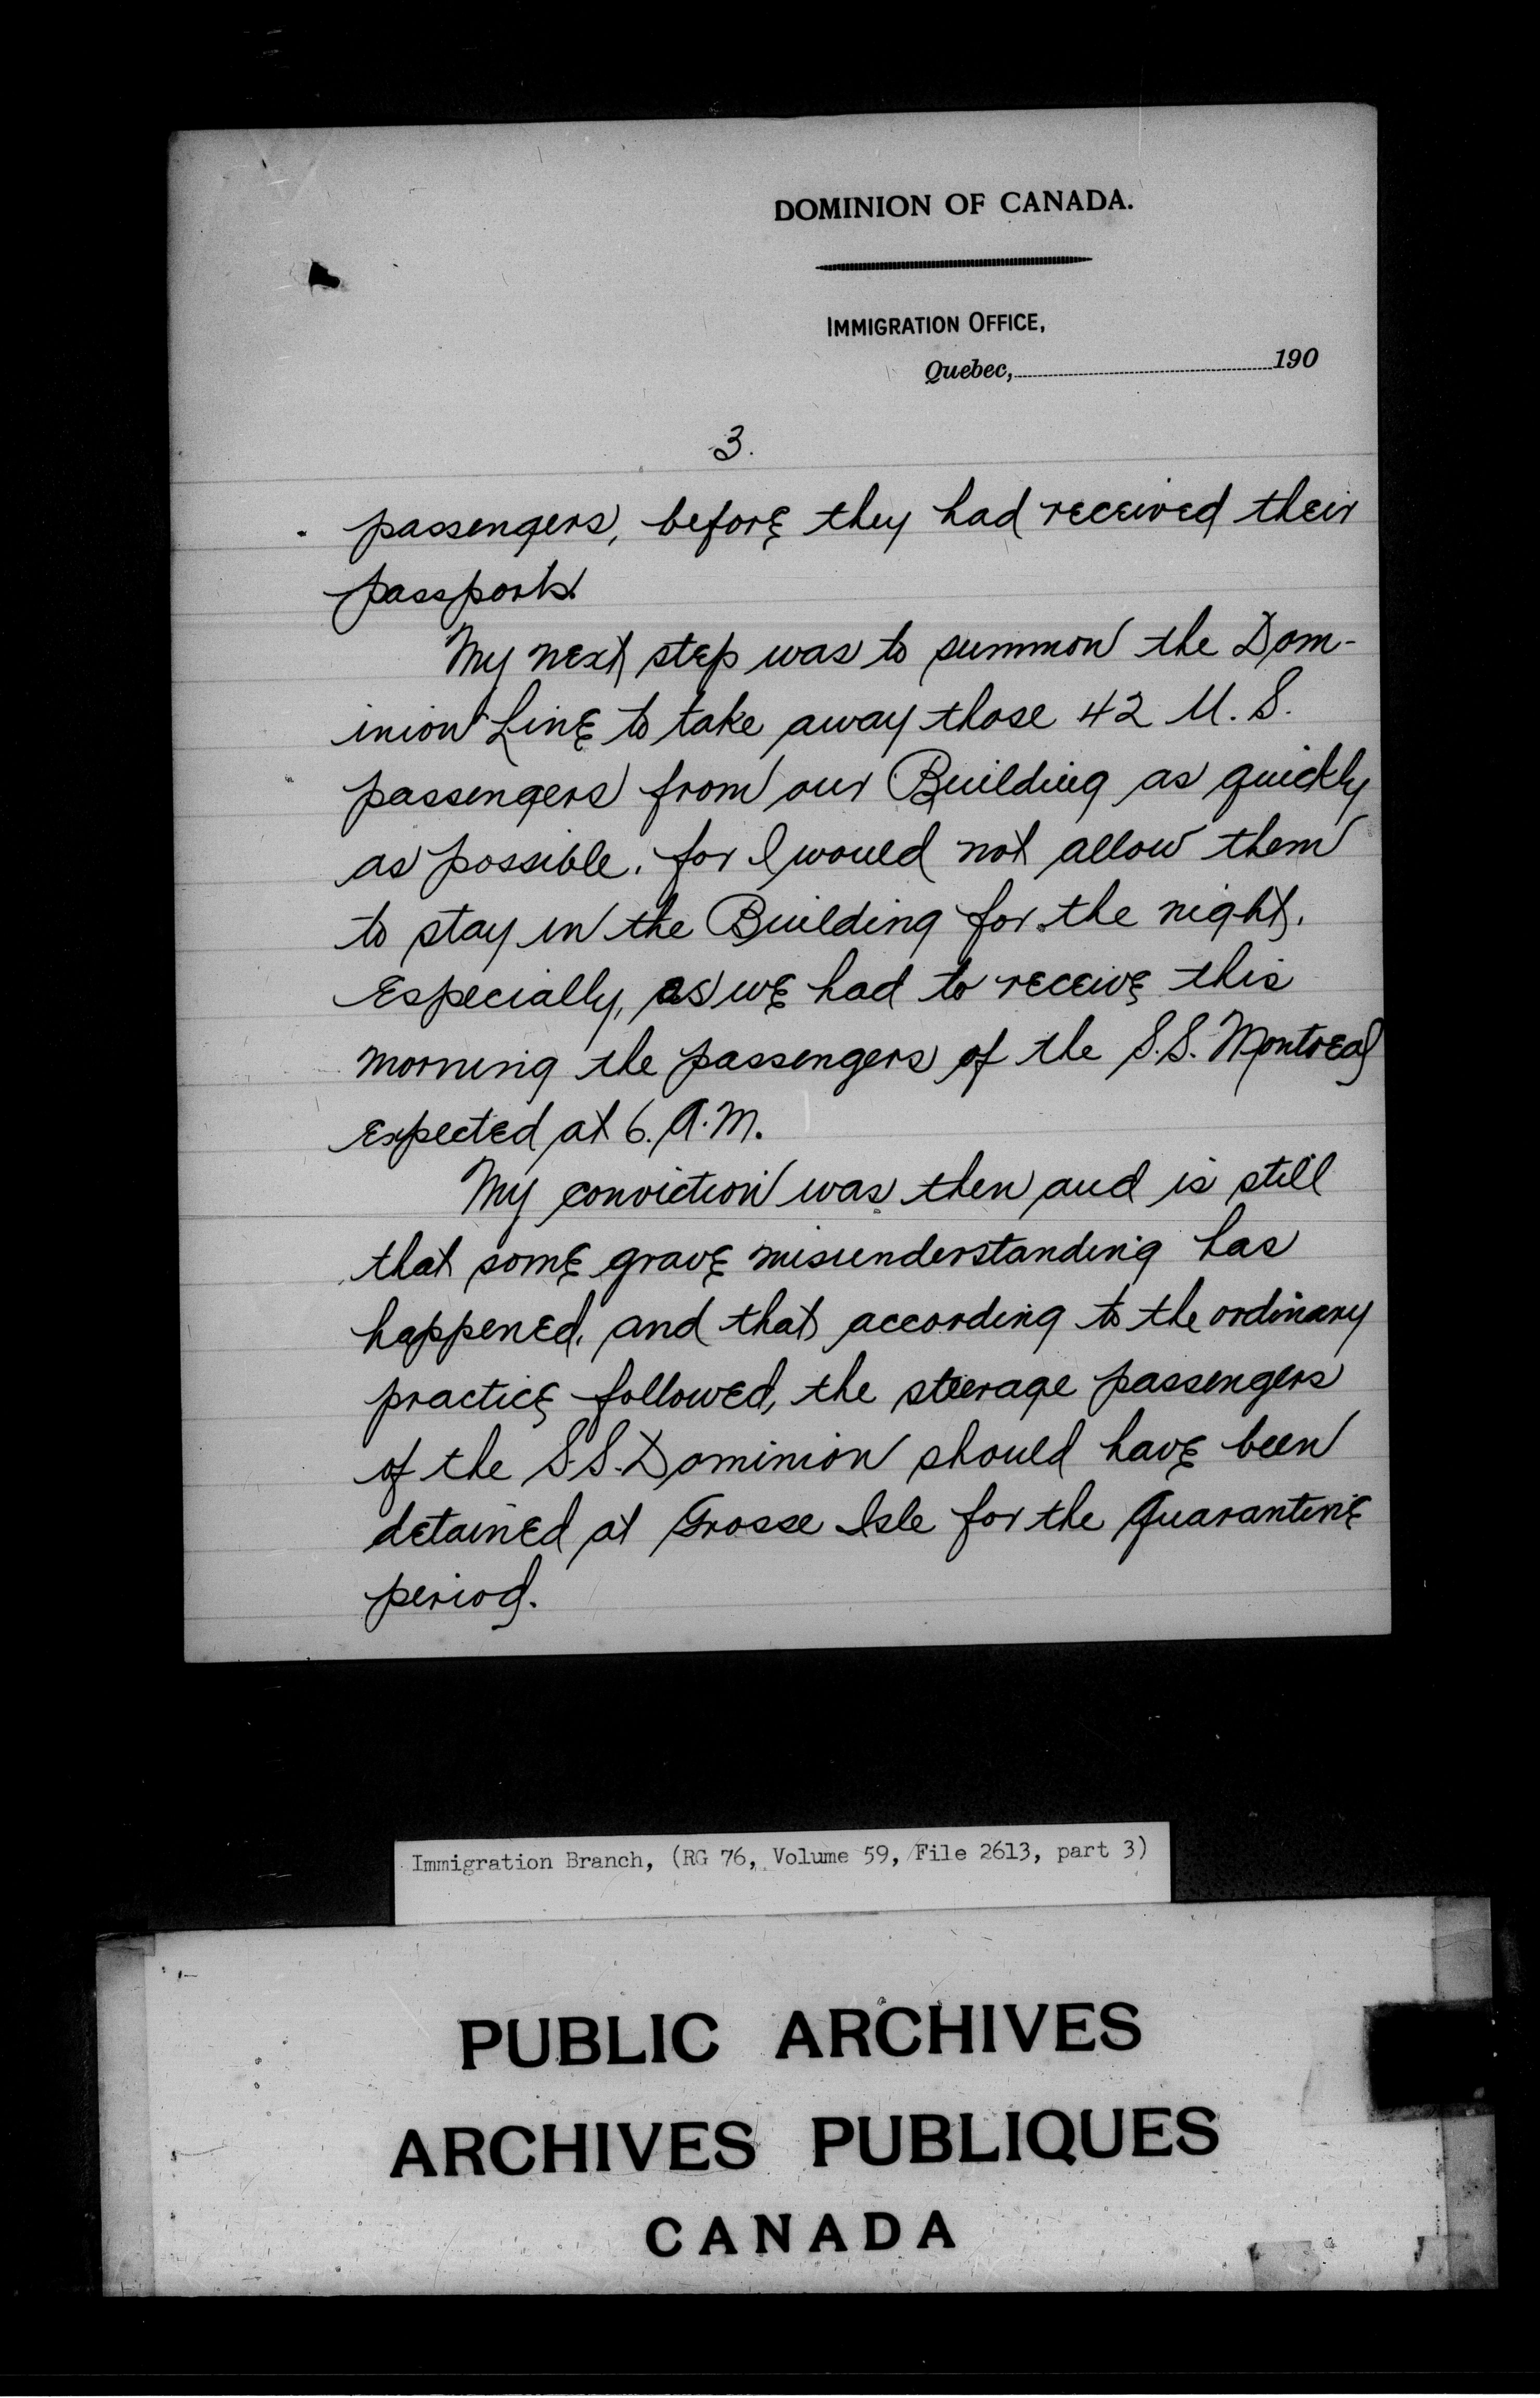 DOMINION OF CANADA.
IMMIGRATION OFFICE,
Quebec, 190
3.
passengers, before they had received their
passports.
My next step was to summon the Dom-
inion Line to take away those 42 U. S.
passengers from our Building as quickly
as possible, for I would not allow them
to stay in the Building for the night,
Especially, as we had to receive this
morning the passengers of the S.S. Montreal
expected at 6. A.M.
My conviction was then and is still
that some grave misunderstanding has
happened, and that according to the ordinary
practice followed, the steerage passengers
of the S.S. Dominion should have been
detained at Grosse Isle for the Quarantine
period.
Immigration Branch, (RG 76, Volume 59, File 2613, part 3)
PUBLIC ARCHIVES
ARCHIVES PUBLIQUES
CANADA